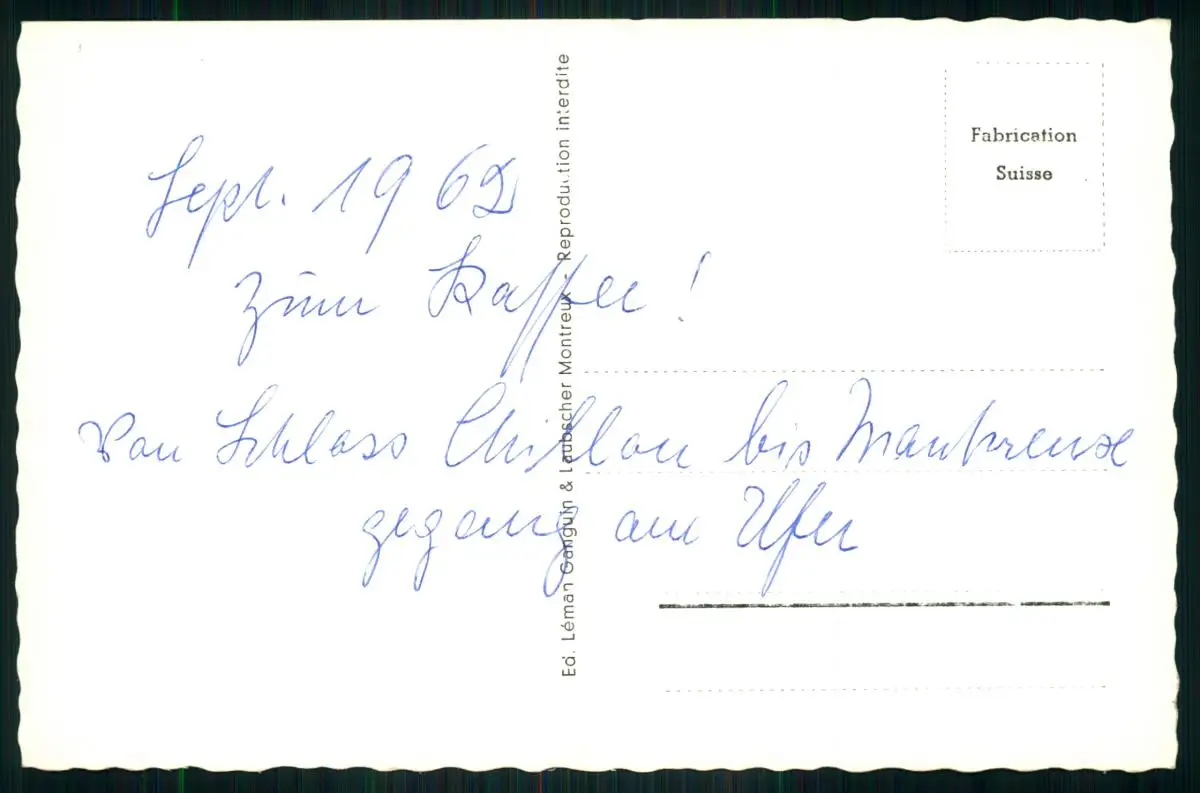 Sept. 1962
zum Kaffee!
Von Schloss Chillon bis Montreux
gegang am Ufer
Ed. Léman Ganguin & Laubscher Montreux - Reproduction interdite
Fabrication
Suisse